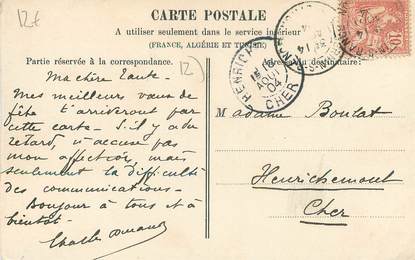 12€
CARTE POSTALE
A utiliser seulement dans le service intérieur
(FRANCE, ALGÉRIE ET TUNISIE)
Partie réservée à la correspondance.
Adresse du destinataire:
12
HENRICH
18
AOUT
04
CHER
10
Ma chère tante
Mes meilleurs vœux de
fête t'arriveront par
cette carte. S'il y a du
retard, n'accuse pas
mon affection, mais
seulement la difficulté
des communications.
Bonjour à tous et à
bientôt.
Charles
Madame Boulat
Henrichemont
Cher